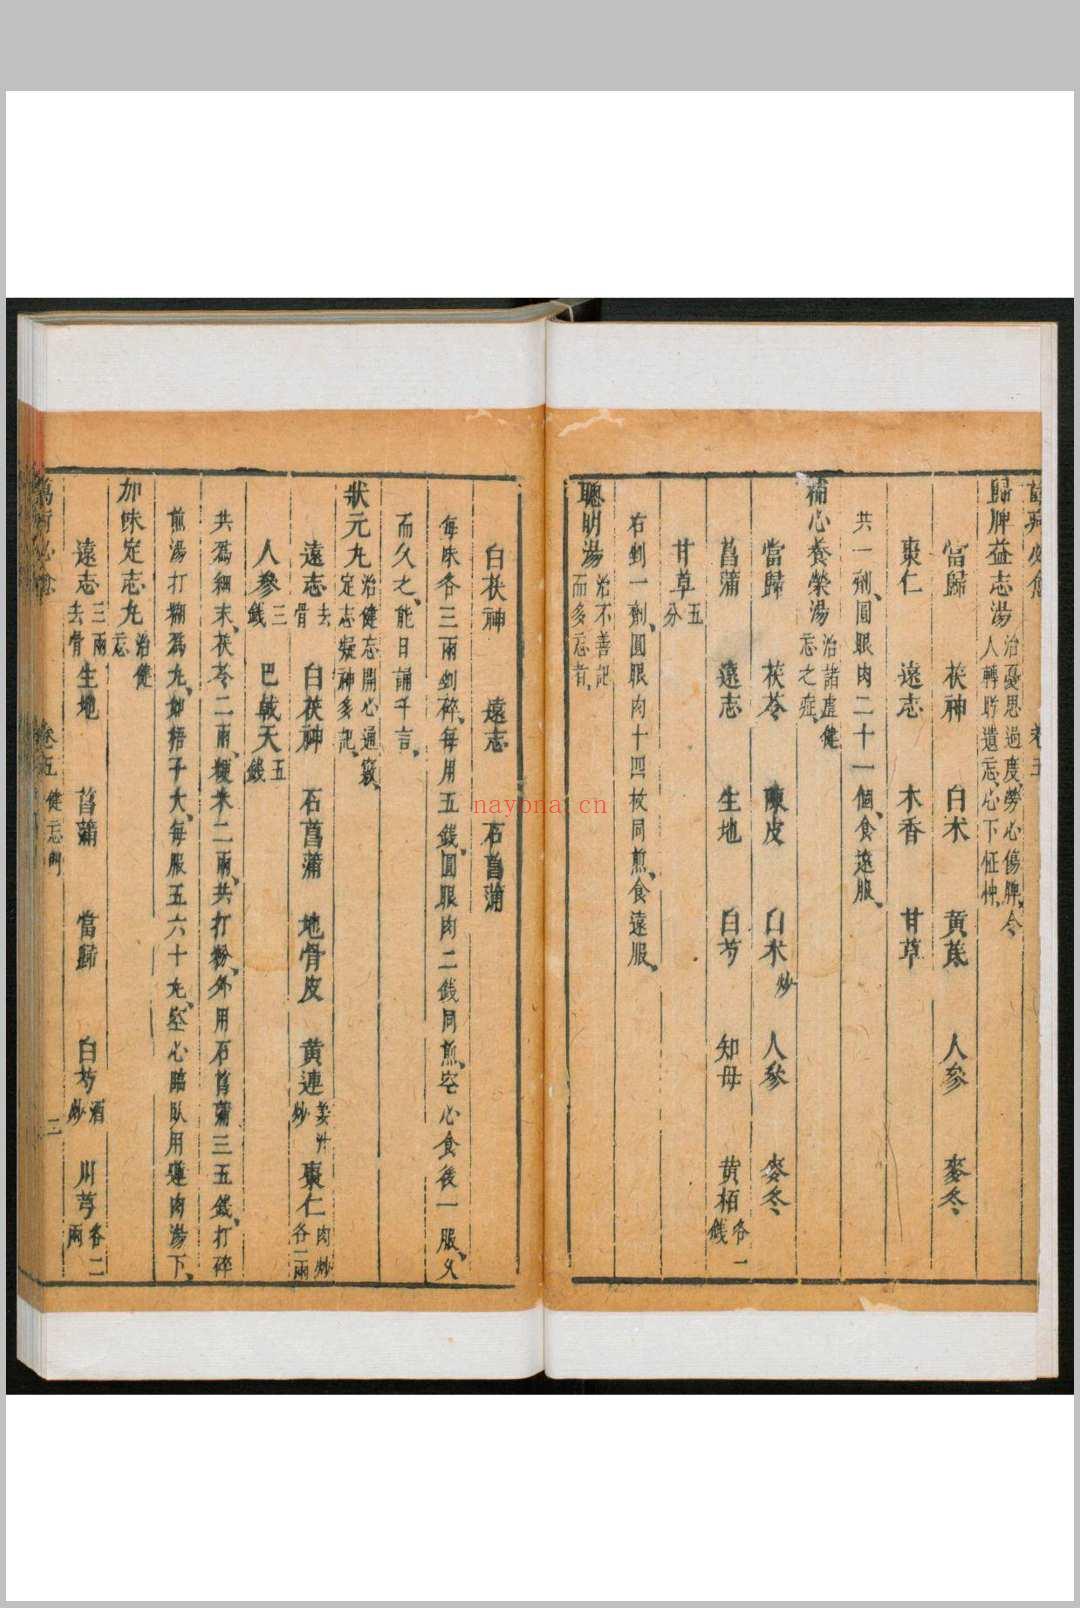 歸脾益志湯 治憂思過度勞心傷脾、令人轉眄遺忘、心下怔忡、
當歸 茯神 白术 黃芪 人參 麥冬
棗仁 遠志 木香 甘草
共一劑、圓眼肉二十一個、食遠服、
補心養榮湯 治諸虛健忘之症、
當歸 茯苓 陳皮 白术炒 人參 麥冬
菖蒲 遠志 生地 白芍 知母 黄栢各一錢
甘草五分
右剉一劑、圓眼肉十四枚同煎、食遠服、
聰明湯 治不善記而多忘者、
白茯神 遠志 石菖蒲
每味各三兩剉碎、每用五錢、圓眼肉二錢同煎、空心食後一服、久
而久之、能日誦千言、
狀元丸 治健忘開心通竅、定志凝神多記、
遠志去骨 白茯神 石菖蒲 地骨皮 黄連姜汁炒 棗仁肉炒各二兩
人參三錢 巴戟天五錢
共爲細末、茯苓二兩、粳米二兩、共打粉、外用石菖蒲三五錢、打碎
煎湯打糊爲丸、如梧子大、每服五六十丸、空心臨臥用蓮肉湯下、
加味定志丸 治健忘
遠志三兩去骨 生地 菖蒲 當歸 白芍酒炒 川芎各二兩
卷五 健忘門 三
nayona.cn